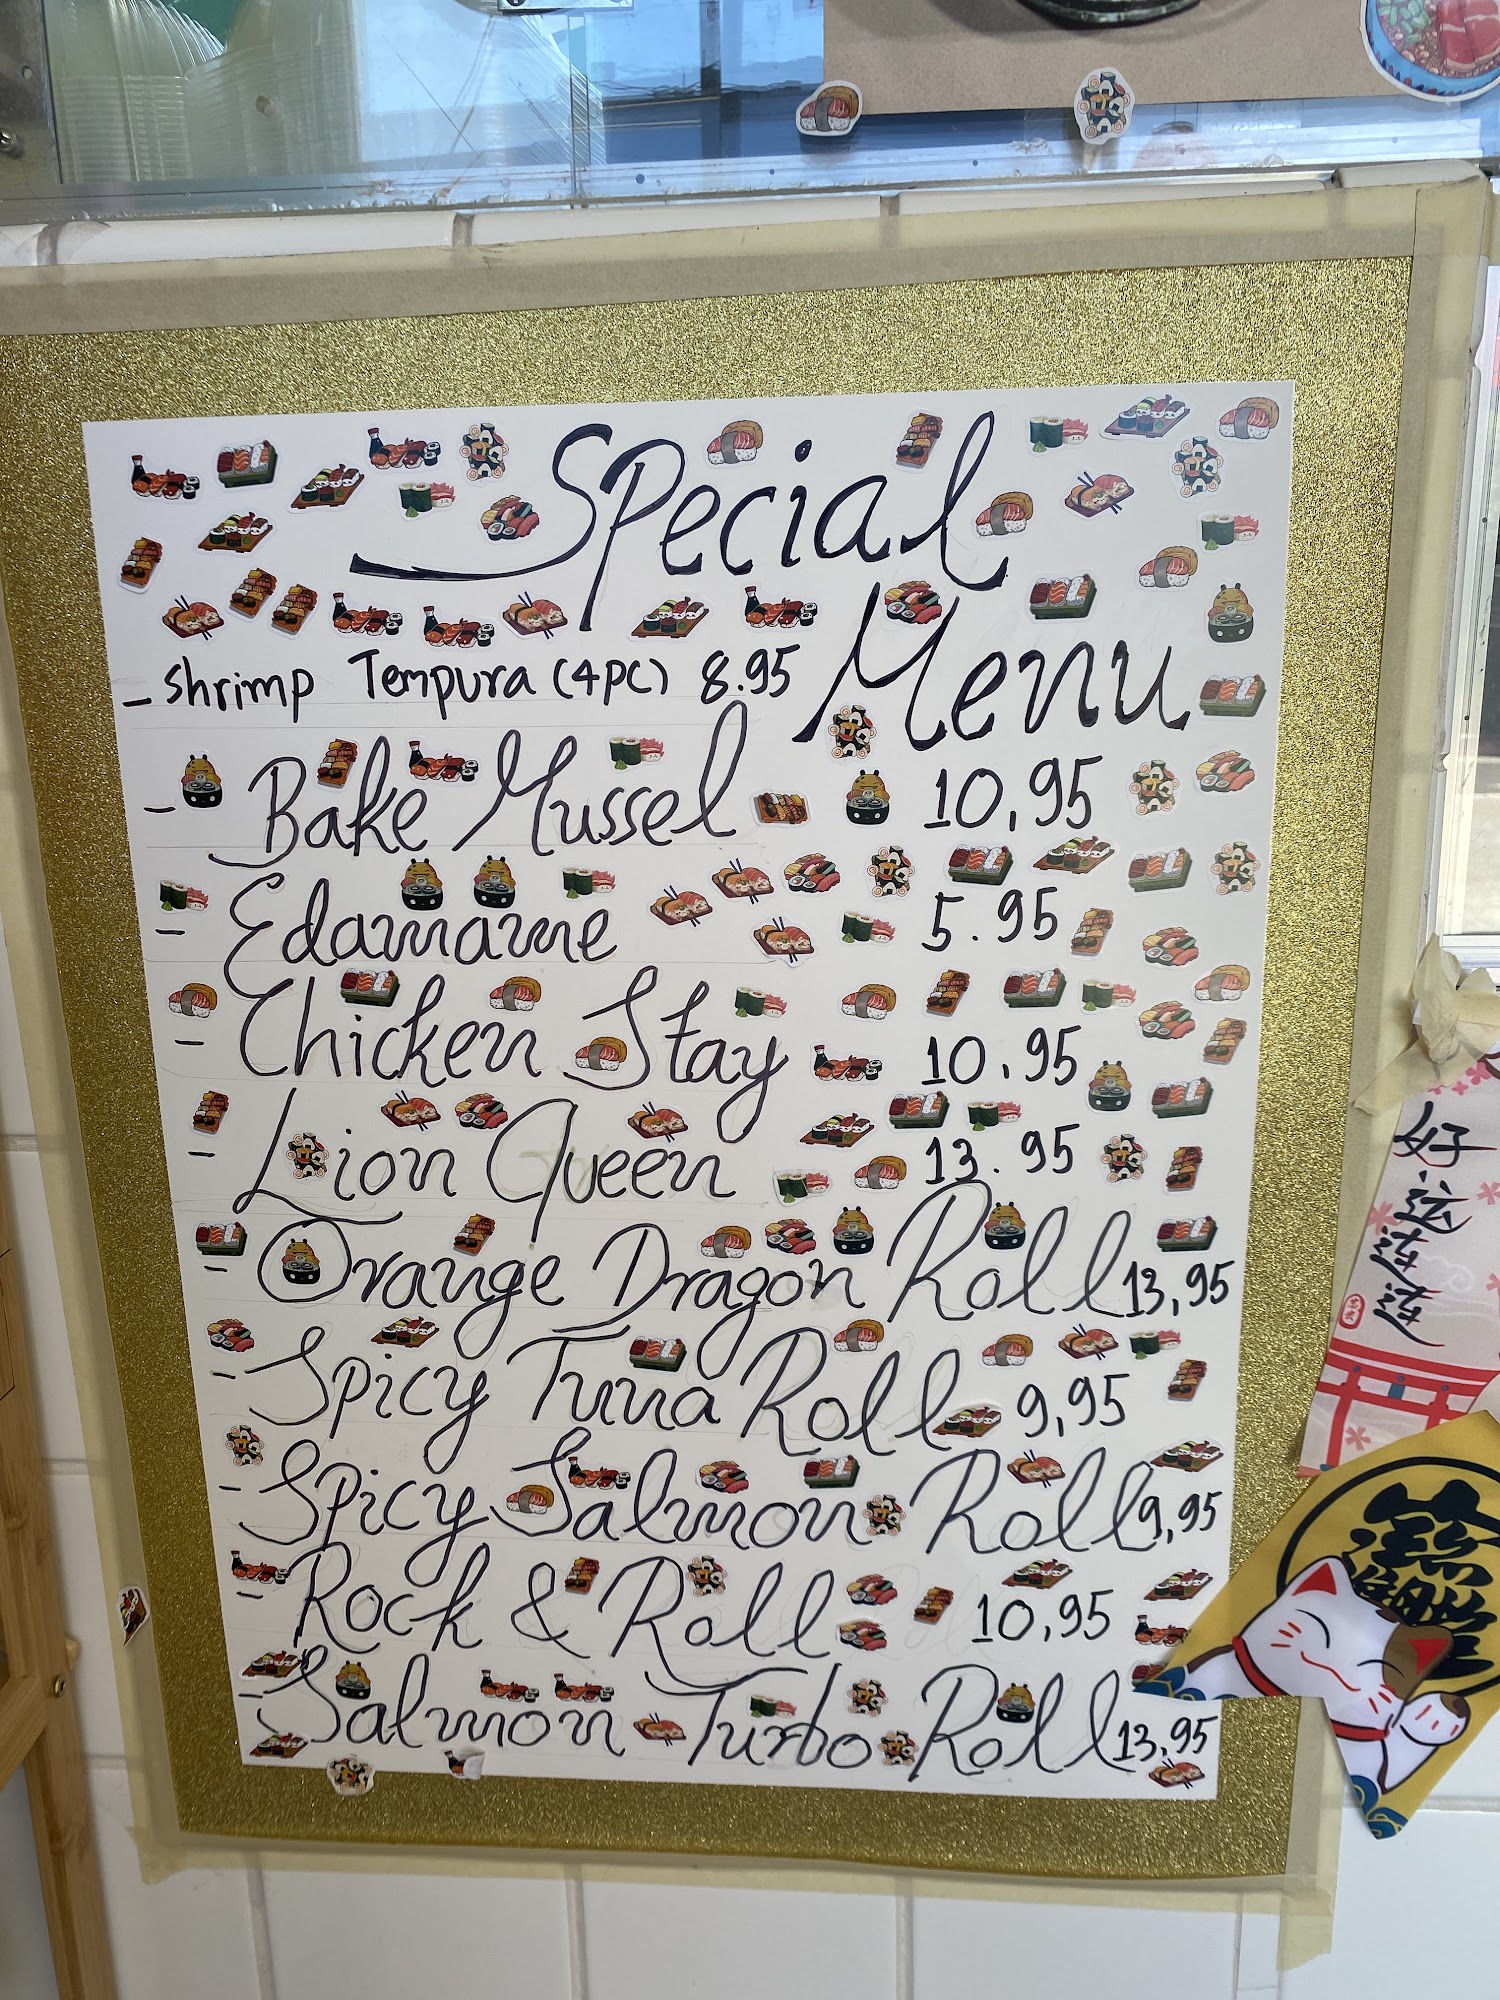 Special
Menu
- Shrimp Tempura (4PC) 8.95
- Bake Mussel 10,95
- Edamame 5.95
- Chicken Stay 10.95
- Lion Queen 13.95
- Orange Dragon Roll 13,95
- Spicy Tuna Roll 9,95
- Spicy Salmon Roll 9,95
- Rock & Roll 10,95
- Salmon Turbo Roll 13,95
好